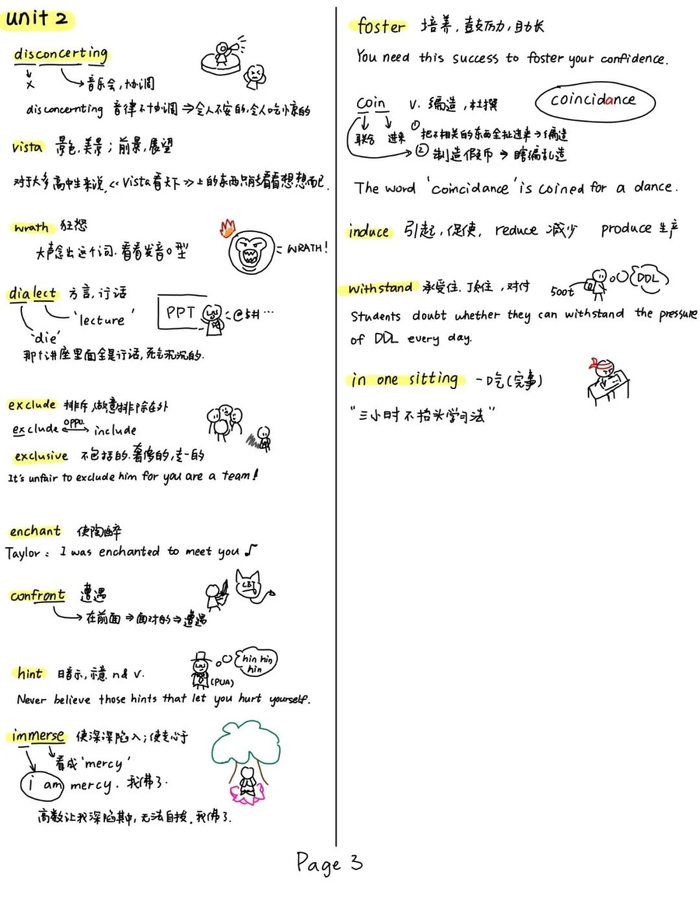 unit 2
disconcerting
x → 音乐会,协调
disconcerting 音律不协调 ⇒ 令人不安的,令人吃惊的
vista 景色,美景;前景,展望
对于大多高中生来说,<<Vista看天下>>上的东西只能看看想想而已.
wrath 狂怒
大声念出这个词.看看发音口型
= WRATH!
dialect 方言,行话
'lecture'
'die'
PPT
@5#…
那个讲座里面全是行话,死气沉沉的.
exclude 排斥,故意排除在外
exclude oppo. include
exclusive 不包括的.奢侈的,专一的
It's unfair to exclude him for you are a team!
enchant 使陶醉
Taylor: I was enchanted to meet you ♪
confront 遭遇
→ 在前面 ⇒ 面对的 ⇒ 遭遇
hint 暗示,示意 n & v.
hin hin
hin
(PUA)
Never believe those hints that let you hurt yourself.
immerse 使深深陷入;使专心于
看成'mercy'
i am mercy. 我佛了.
高数让我深陷其中,无法自拔,我佛了.
foster 培养,鼓励,助长
You need this success to foster your confidence.
coin v. 编造,杜撰
coincidance
联合 进来 ① 把不相关的东西全扯进来 → 编造
② 制造假币 → 瞎编乱造
The word 'coincidance' is coined for a dance.
induce 引起,促使, reduce 减少 produce 生产
withstand 承受住.顶住,对付
500t
DDL
Students doubt whether they can withstand the pressure
of DDL every day.
in one sitting 一口吃(完事)
"三小时不抬头学习法"
Page 3